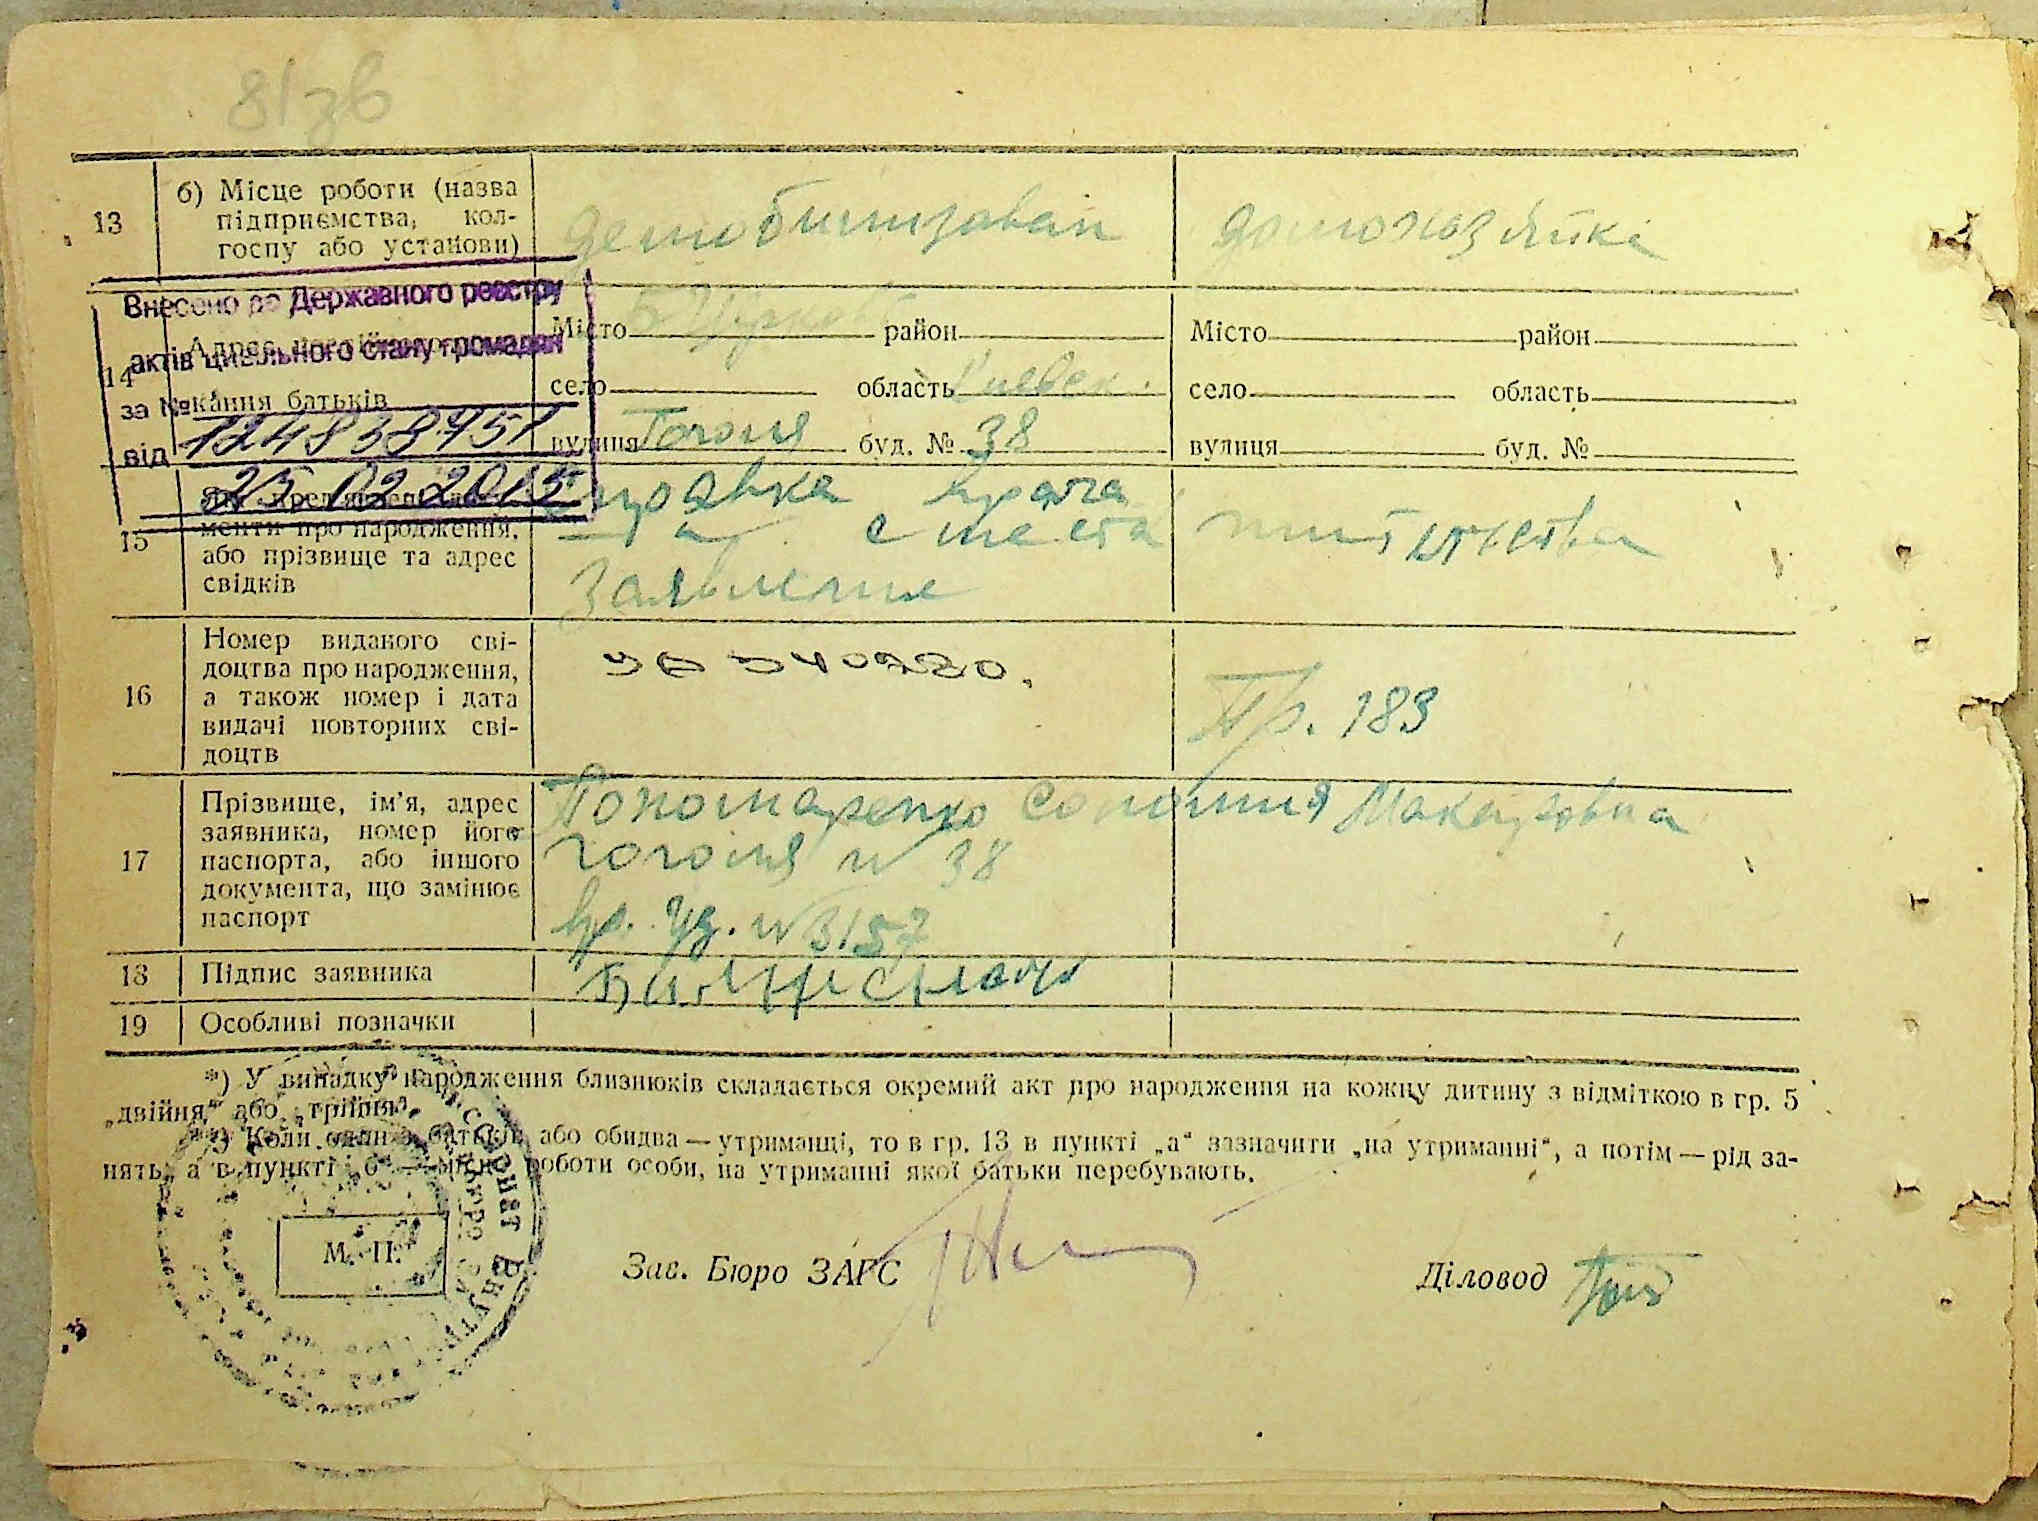 13
б) Місце роботи (назва
підприємства, кол-
госпу або установи)
демобилизован
домохозяйка
Внесено до Державного реєстру
актів цивільного стану громадян
за №
від
25 02 2015
14
кання батьків
Місто Б Церковь район
село область Киевск.
вулиця Гоголя буд. № 38
Місто район
село область
вулиця буд. №
15
менти про народження,
або прізвище та адрес
свідків
справка врача
с места жительства
Заявление
16
Номер виданого сві-
доцтва про народження,
а також номер і дата
видачі повторних сві-
доцтв
Пр. 183
17
Прізвище, ім'я, адрес
заявника, номер його
паспорта, або іншого
документа, що замінює
паспорт
Пономаренко Соломия Макаровна
Гоголя № 38
вр. уд. № 3157
18
Підпис заявника
19
Особливі позначки
*) У випадку народження близнюків складається окремий акт про народження на кожну дитину з відміткою в гр. 5
„двійня" або „трійня".
*) Коли один з батьків або обидва — утриманці, то в гр. 13 в пункті „а" зазначити „на утриманні", а потім — рід за-
нять, а в пункті „б" — місце роботи особи, на утриманні якої батьки перебувають.
М. П.
Зав. Бюро ЗАГС
Діловод